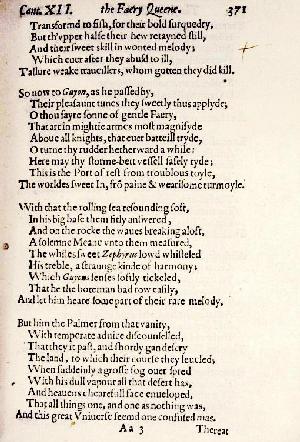 Cant. XII. the Faery Queene. 371
Transformd to fish, for their bold surquedry,
But th'vpper halfe their hew retayned still,
And their sweet skill in wonted melody;
Which euer after they abusd to ill,
T'allure weake traueillers, whom gotten they did kill.
So now to Guyon, as he passed by,
Their pleasaunt tunes they sweetly thus applyde;
O thou fayre sonne of gentle Faery,
That art in mightie armes most magnifyde
Aboue all knights, that euer batteill tryde,
O turne thy rudder hetherward a while:
Here may thy storme-bett vessell safely ryde;
This is the Port of rest from troublous toyle,
The worldes sweet In, frõ paine & wearisome turmoyle.
With that the rolling sea resounding soft,
In his big base them fitly answered,
And on the rocke the waues breaking aloft,
A solemne Meane vnto them measured,
The whiles sweet Zephyrus lowd whisteled
His treble, a straunge kinde of harmony;
Which Guyons senses softly tickeled,
That he the boteman bad row easily,
And let him heare some part of their rare melody.
But him the Palmer from that vanity,
With temperate aduice discounselled,
That they it past, and shortly gan descry
The land, to which their course they leueled;
When suddeinly a grosse fog ouer spred
With his dull vapour all that desert has,
And heauens chearefull face enueloped,
That all things one, and one as nothing was,
And this great Vniuerse seemd one confused mas.
Aa 3 Thereat